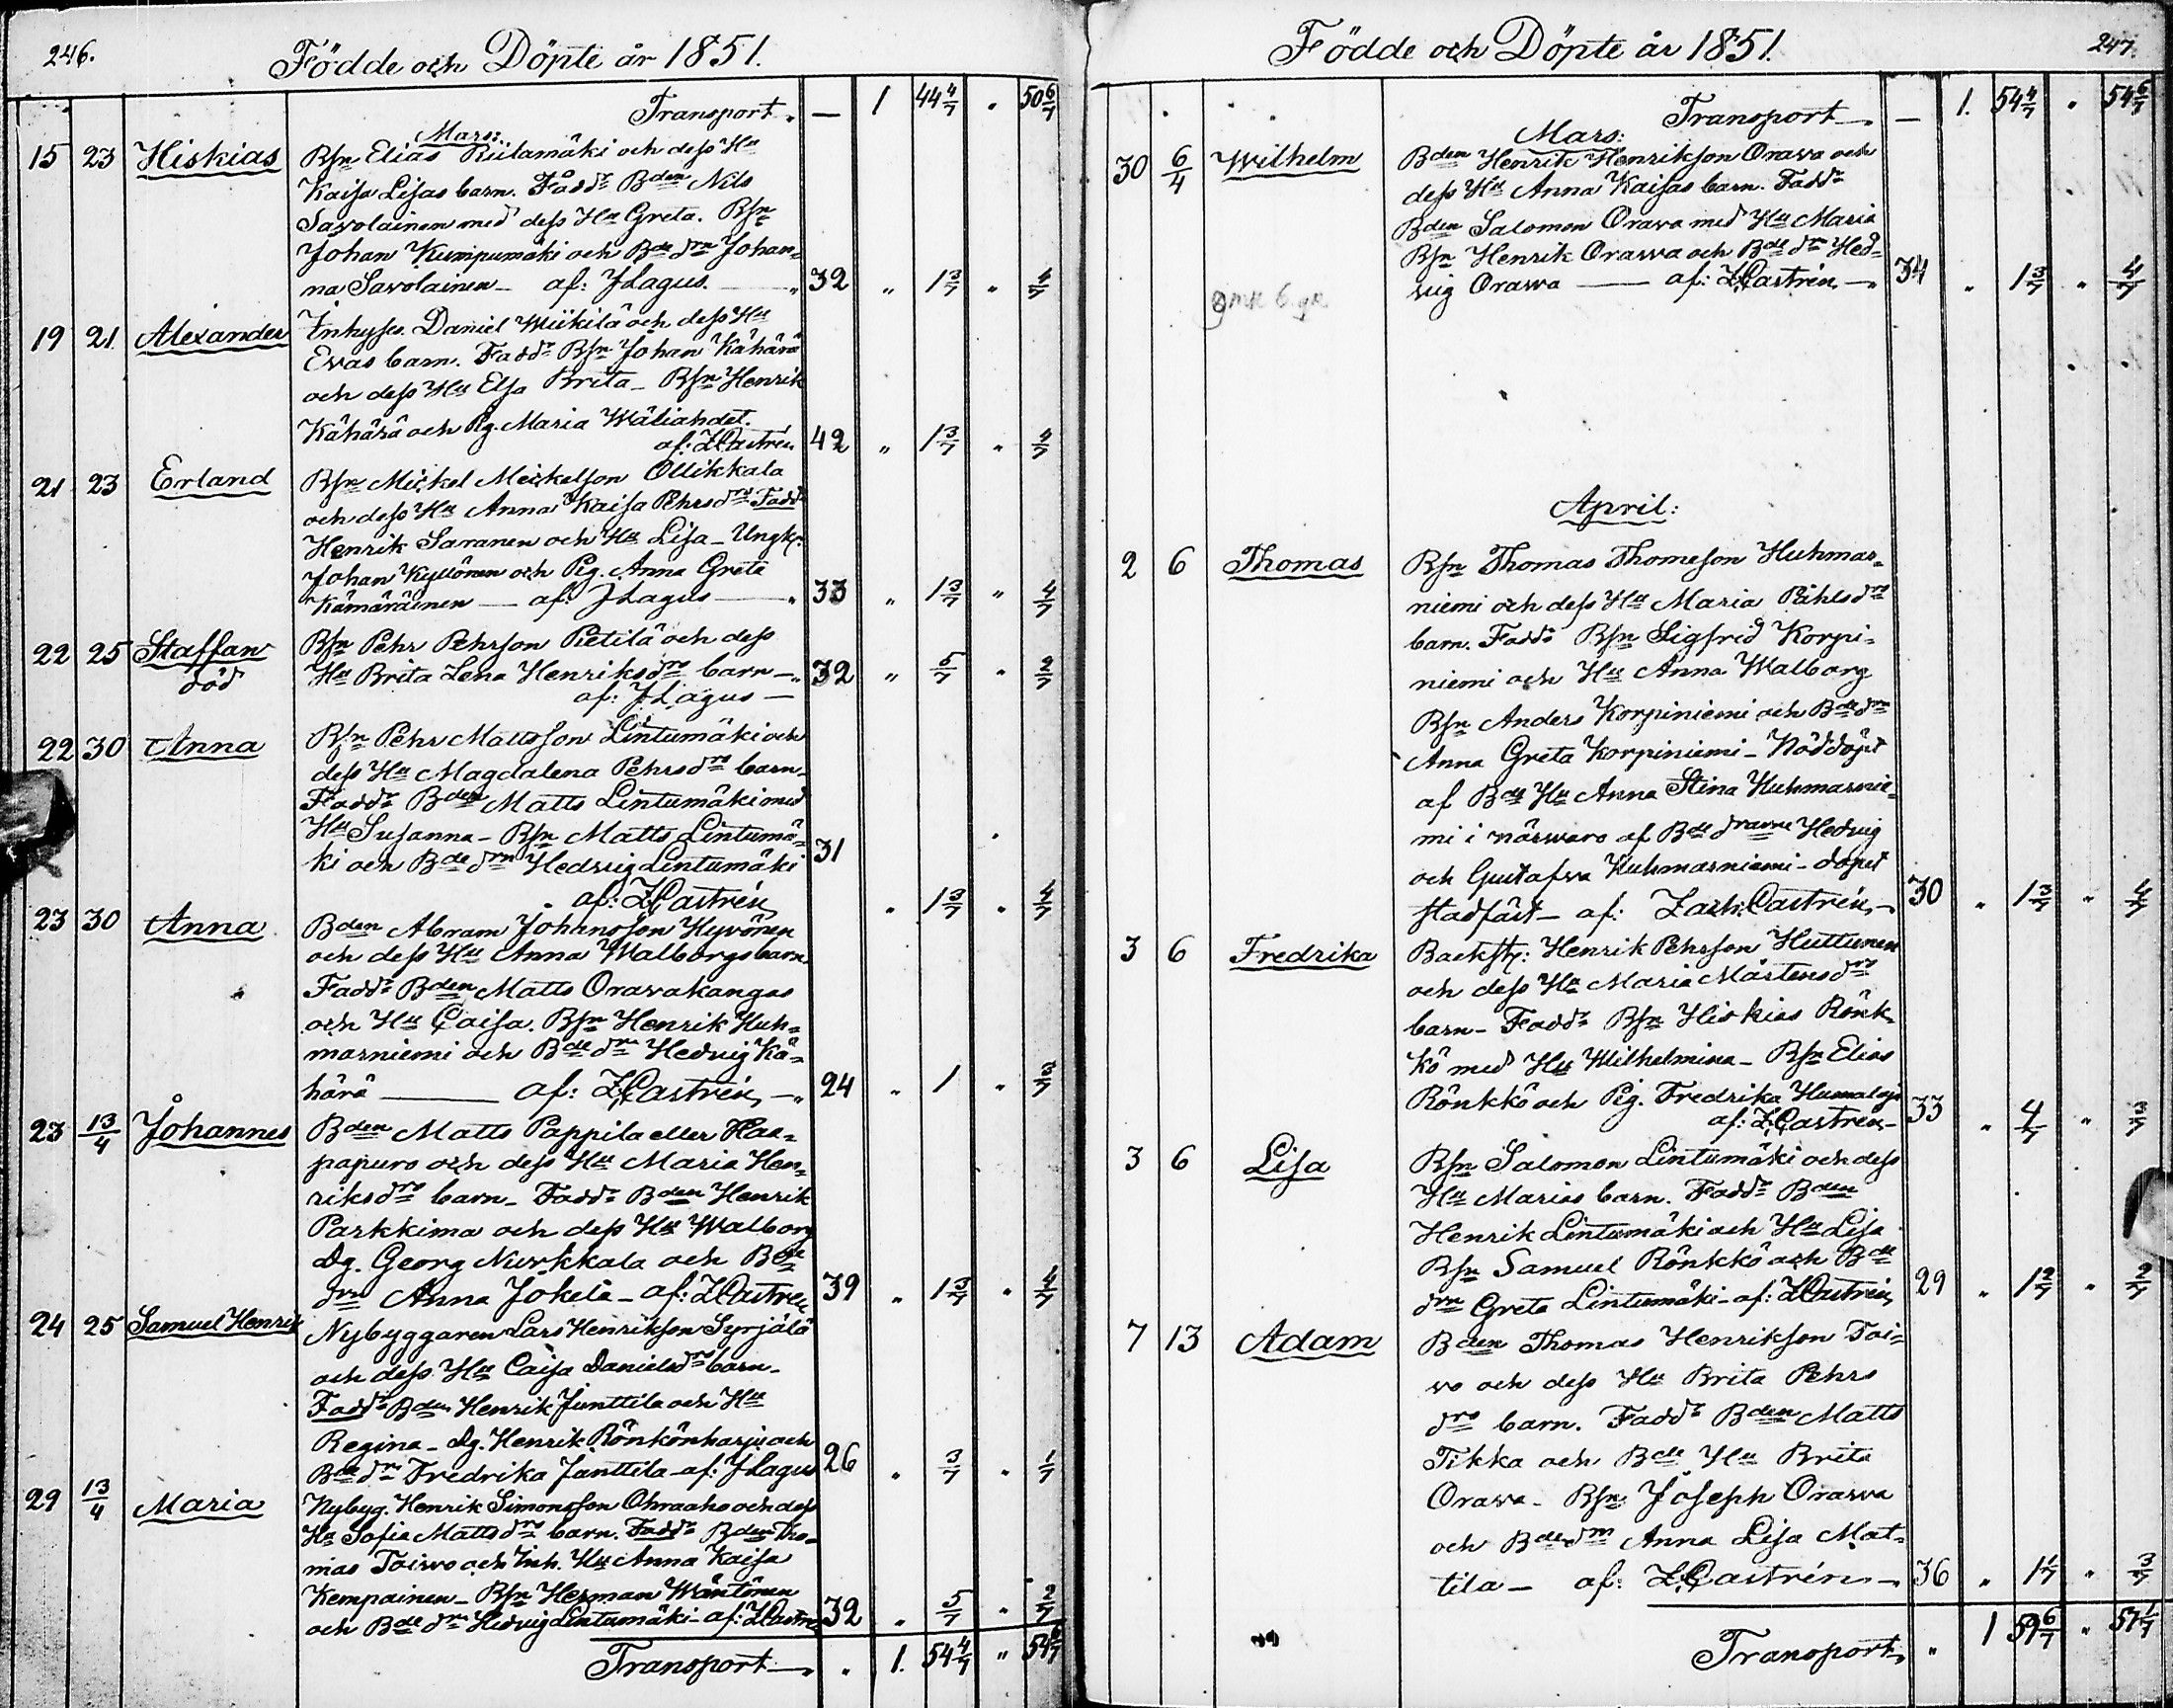 246.
Födde och Döpte år 1851.
Transport. — 1 44 4/7 " 50 6/7
Mars:
15 23 Hiskias Bsn Elias Riilamäki och dess Hu
Kaisa Lisas barn. Faddr Bden Nils
Savolainen med dess Hu Greta. Bsn
Johan Kumpumäki och Bde dr Johan-
na Savolainen — af: JLagus. — " 32 " 1 3/7 " 4/7
19 21 Alexander Inhyses Daniel Wiikilä och dess Hu
Evas barn. Faddr Bsn Johan Kähärä
och dess Hu Elsa Brita — Bsn Henrik
Kähärä och Pig. Maria Wäliahdet.
af: ZCastrén 42 " 1 3/7 " 4/7
21 23 Erland Bsn Mickel Mickelson Ollikkala
och dess Hu Anna Kaisa Pehrsdrs Faddr
Henrik Saranen och Hu Lisa — Ungk.
Johan Kyllönen och Pig. Anna Greta
Kämäräinen — af: JLagus — " 33 " 1 3/7 " 4/7
22 25 Staffan Bsn Pehr Pehrson Pietilä och dess
död Hu Brita Lena Henriksdrs barn — " 32 " 5/7 " 2/7
af: JLagus —
22 30 Anna Bsn Pehr Mattsson Lintumäki och
dess Hu Magdalena Pehrsdrs barn —
Faddr Bden Matts Lintumäki med
Hu Susanna — Bsn Matts Lintumä-
ki och Bde drn Hedvig Lintumäki 31
af: ZCastrén " 1 3/7 " 4/7
23 30 Anna Bden Abram Johansson Hyvönen
och dess Hu Anna Walborgs barn.
Faddr Bden Matts Oravakangas
och Hu Caisa. Bsn Henrik Huh-
marniemi och Bde drn Hedvig Kä-
härä — af: ZCastrén — " 24 " 1 " 3/7
23 13/4 Johannes Bden Matts Pappila eller Haa-
papuro och dess Hu Maria Hen-
riksdrs barn — Faddr Bden Henrik
Parkkima och dess Hu Walborg
Dg. Georg Nurkkala och Bde
drn Anna Jokela — af: ZCastrén 39 " 1 3/7 " 4/7
24 25 Samuel Henrik Nybyggaren Lars Henrikson Syrjälä
och dess Hu Caisa Danielsdrs barn —
Faddr Bden Henrik Junttila och Hu
Regina — Dg. Henrik Rönkönharju och
Bde drn Fredrika Junttila — af: JLagus 26 " 3/7 " 1/7
29 13/4 Maria Nybyg. Henrik Simonsson Ohraaho och dess
Hu Sofia Mattsdrs barn. Faddr Bden Tho-
mas Toivo och Inh. Hu Anna Kaisa
Kempainen — Bsn Herman Wäntönen
och Bde drn Hedvig Lintumäki — af: ZCastrén 32 " 5/7 " 2/7
Transport — " 1. 54 4/7 " 54 6/7
Födde och Döpte år 1851.
247.
Transport — 1. 54 4/7 " 54 6/7
Mars:
30 6/4 Wilhelm Bden Henrik Henrikson Orava och
dess Hu Anna Kaisas barn. Faddr
Bden Salomon Orava med Hu Maria
Bsn Henrik Orawa och Bde drn Hed-
vig Orawa — af: ZCastrén — " 34 " 1 3/7 " 4/7
April:
2 6 Thomas Bsn Thomas Thomeson Huhmar-
niemi och dess Hu Maria Påhlsdrs
barn. Faddr Bsn Sigfrid Korpi-
niemi och Hu Anna Walborg
Bsn Anders Korpiniemi och Bde drn
Anna Greta Korpiniemi — Nöddöpt
af Bde Hu Anna Stina Huhmarnie-
mi i närwaro af Bde drarne Hedvig
och Gustafva Huhmarniemi — dopet
stadfäst — af: Zach: Castrén — 30 " 1 3/7 " 4/7
3 6 Fredrika Backst: Henrik Pehrsson Huttunen
och dess Hu Maria Mårtensdrs
barn — Faddr Bsn Hiskias Rönk-
kö med Hu Wilhelmina — Bsn Elias
Rönkkö och Pig. Fredrika
af: ZCastrén — 33 " 4/7 " 3/7
3 6 Lisa Bsn Salomon Lintumäki och dess
Hu Marias barn. Faddr Bden
Henrik Lintumäki och Hu Lisa
Bsn Samuel Rönkkö och Bde
drn Greta Lintumäki — af: ZCastrén 29 " 1 2/7 " 2/7
7 13 Adam Bden Thomas Henrikson Toi-
vo och dess Hu Brita Pehrs
drs barn. Faddr Bden Matts
Tikka och Bde Hu Brita
Orava — Bsn Joseph Orawa
och Bde drn Anna Lisa Mat-
tila — af: ZCastrén — " 36 " 1 1/7 " 3/7
Transport " 1 59 6/7 " 57 1/7